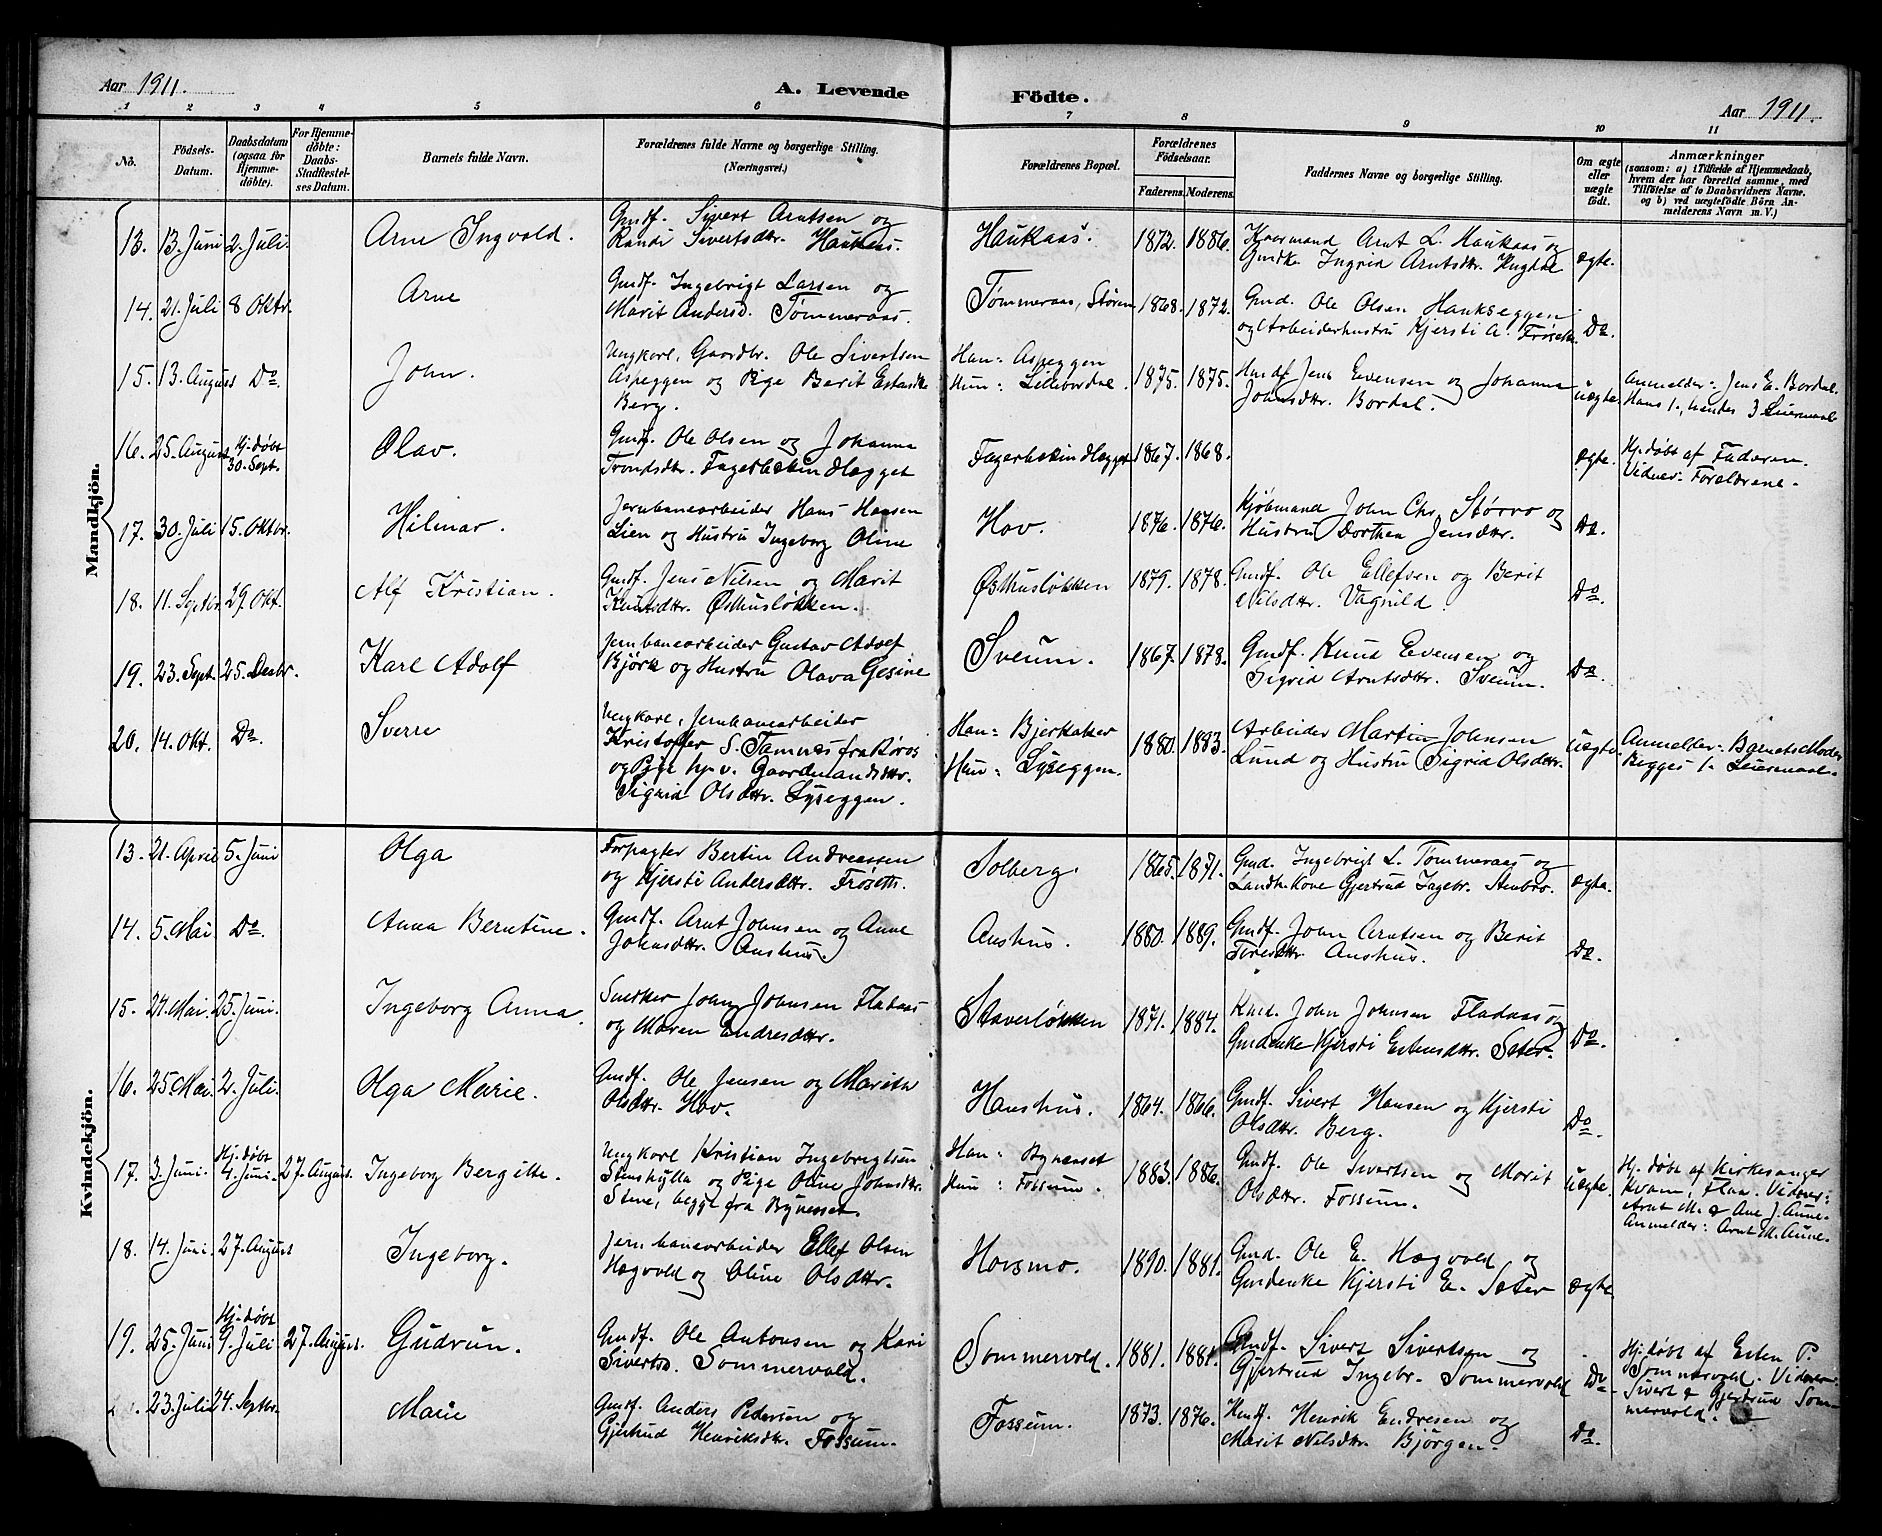 Aar 1911.
A. Levende
Födte.
Aar 1911.
1 2 3 4 5 6 7 8 9 10 11
No.
Födsels-
Datum.
Daabsdatum
(ogsaa för
Hjemme-
döbte).
For Hjemme-
döbte:
Daabs-
Stadfestel-
ses Datum.
Barnets fulde Navn.
Forældrenes fulde Navne og borgerlige Stilling.
(Næringsvei.)
Forældrenes Bopæl.
Forældrenes
Födselsaar.
Faderens. Moderens.
Faddernes Navne og borgerlige Stilling.
Om ægte
eller
uægte
födt.
Anmærkninger
(saasom: a) i Tilfælde af Hjemmedaab,
hvem der har forrettet samme, med
Tilföielse af to Daabsvidners Navne.
og b) ved uægtefödte Börn An-
melderens Navn m. V.)
Mandkjön.
13. 13. Juni 2. Juli.
Arne Ingvold.
Gmdf. Sivert Arntsen og
Randi Sivertsdtr. Haukaas.
Haukaas.
1872. 1886.
Kaarmand Arnt L. Haukaas og
Gmdke Ingrid Arntsdtr. Hugdal
ægte.
14. 21. Juli 8 Oktr.
Arne
Gmdf. Ingebrigt Larsen og
Marit Andersd. Tømmeraas.
Tømmeraas, Støren
1868. 1872.
Gmd. Ole Olsen Haukseggen
og Arbeiderhustru Kjersti A. Frøseth.
Do.
15. 13. August Do.
John.
Ungkarl, Gaardbr. Ole Sivertsen
Aspeggen og Pige Berit Estensdtr
Berg.
Han: Aspeggen
Hun: Lillebordal.
1875. 1875.
Gmdf. Jens Evensen og Johanna
Johnsdtr. Bordal.
uægte.
Anmelder: Jens E. Bordal.
Hans 1., hendes 3 Leiermaal
16. 25. August Hj. døbt
30. Sept.
Olav.
Gmdf. Ole Olsen og Johanna
Trondsdtr. Fagerbekin Hægget
Fagerbekin Hægget
1867. 1868.
ægte.
Hj. døbt af Faderen.
Vidner: Forældrene.
17. 30. Juli 15. Oktbr.
Hilmar.
Jernbanearbeider Hans Hansen
Lien og Hustru Ingeborg Oline
Hov.
1876. 1876.
Kjøbmand John Chr. Størro og
Hustru Dorthea Jensdtr.
Do.
18. 11. Septbr. 29. Okt.
Alf Kristian.
Gmdf. Jens Nilsen og Marit
Knutsdtr. Østhusløkken.
Østhusløkken
1879. 1878.
Gmdf. Ole Ellefsen og Berit
Nilsdtr. Vagnild.
Do.
19. 23. Sept. 25. Desbr.
Karl Adolf
Jernbanearbeider Gustav Adolf
Björk og Hustru Olava Gesine
Sveum.
1867. 1878.
Gmdf. Knud Evensen og
Sigrid Arntsdtr. Sveum.
Do.
20. 14. Okt. Do.
Sverre
Ungkarl, Jernbanearbeider
Kristoffer S. Tamnes fra Røros
og Pige hj. v. Gaardmandsdtr.
Sigrid Olsdtr. Lyseggen.
Han: Bjerkaker
Hun: Lyseggen.
1880. 1883.
Arbeider Martin Johnsen
Lund og Hustru Sigrid Olsdtr.
uægte.
Anmelder: Barnets Moder
Begges 1. Leiermaal.
Kvindekjön.
13. 21. April 5. Juni
Olga
Forpagter Bertin Andreassen
og Kjersti Andersdtr. Frøseth.
Solberg.
1865. 1871.
Gmd. Ingebrigt L. Tømmeraas og
Landh. Kone Gjertrud Ingebr. Stenbro.
ægte.
14. 5. Mai. Do.
Anna Berntine.
Gmdf. Arnt Johnsen og Anne
Johnsdtr. Aushus.
Aushus.
1880. 1889.
Gmdf. John Arntsen og Berit
Toresdtr. Aushus.
Do.
15. 27. Mai. 25. Juni.
Ingeborg Anna.
Snekker John Johnsen Fladaas
og Maren Endresdtr.
Staverløkken
1871. 1884.
Kard. John Johnsen Fladaas og
Gmdenke Kjersti Estensdtr. Seter.
Do.
16. 25. Mai. 2. Juli.
Olga Marie.
Gmdf. Ole Jensen og Marith
Olsdtr. Hov.
Haushus.
1864. 1866.
Gmdf. Sivert Hansen og Kjersti
Olsdtr. Berg.
Do.
17. 3. Juni. Hj. døbt
4. Juni. 27. August.
Ingeborg Bergitte.
Ungkarl Kristian Ingebrigtsen
Stenshylla og Pige Oline Johnsdtr.
Stene, begge fra Bynesset.
Han: Bynesset
Hun: Fossum.
1883. 1886.
Gmdf. Ole Sivertsen og Marit
Olsdtr. Fossum.
uægte.
Hj. døbt af Kirkesanger
Kvam, Flaa. Vidner:
Arnt M. & Ane J. Aune.
Anmelder: Arnt M. Aune.
18. 14. Juni. 27. August
Ingeborg.
Jernbanearbeider Ellef Olsen
Hægvold og Oline Olsdtr.
Hovsmo.
1890. 1881.
Gmd. Ole E. Hægvold og
Gmdenke Kjersti E. Seter
ægte
19. 25. Juni Hj. døbt
9. Juli 27. August.
Gudrun.
Gmdf. Ole Antonsen og Kari
Sivertsd. Sommervold.
Sommervold.
1881. 1881.
Gmdf. Sivert Sivertsen og
Gjertrud Ingebr. Sommervold
Do.
Hj. døbt af Esten P.
Sommervold. Vidner:
Sivert & Gjertrud Som-
mervold.
23. Juli 24. Septbr.
Marie
Gmdf. Anders Pedersen og
Gjertrud Henriksdtr. Fossum.
Fossum.
1873. 1876.
Gmdf. Henrik Endresen og
Marit Nilsdtr. Bjørgen.
Do.